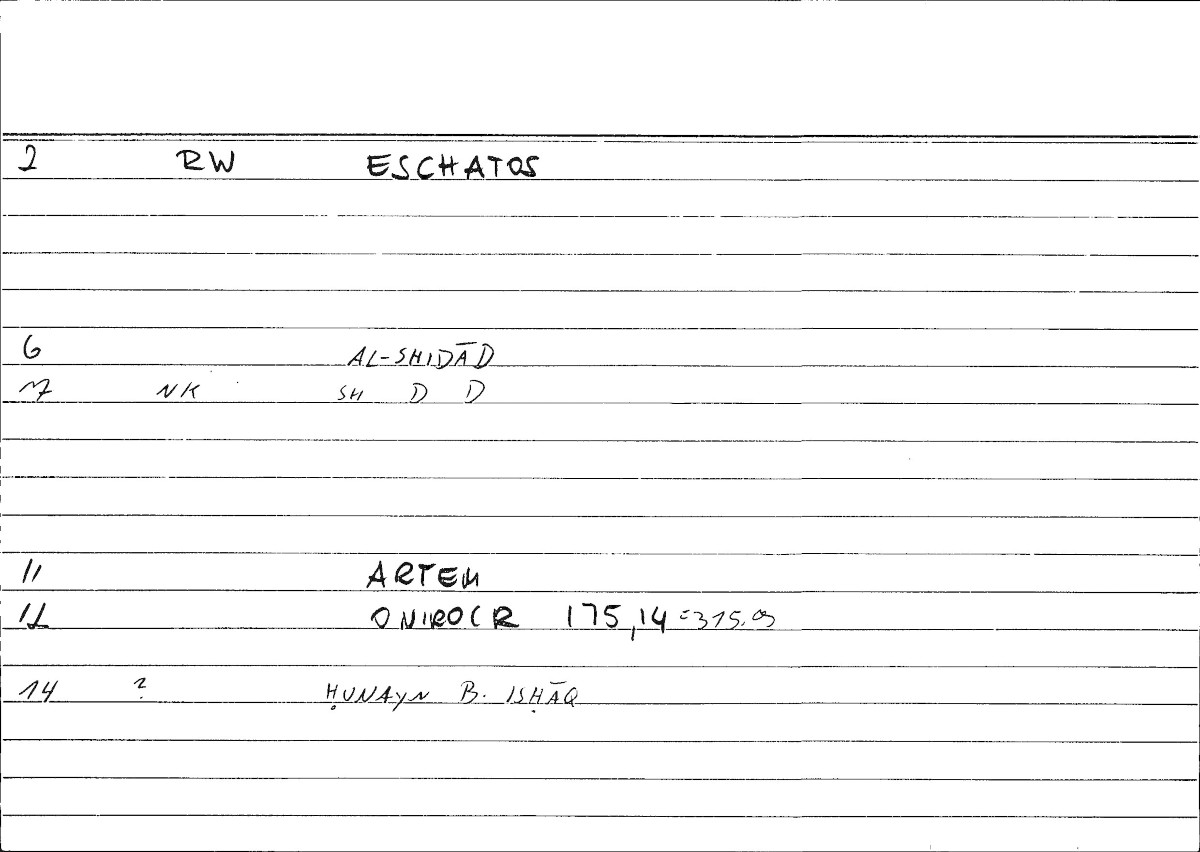 2 RW ESCHATOS
6 AL-SHIDĀD
7 NK SH D D
11 ARTEM
12 ONIROCR 175,14 =315.09
14 ? ḤUNAYN B. ISḤĀQ